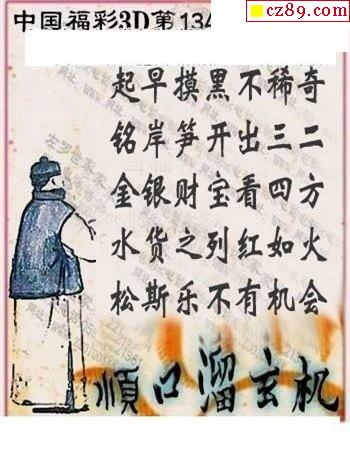 cz89.com
中国福彩3D第134
起早摸黑不稀奇
铭岸笋开出三二
金银财宝看四方
水货之列红如火
松斯乐不有机会
顺口溜玄机